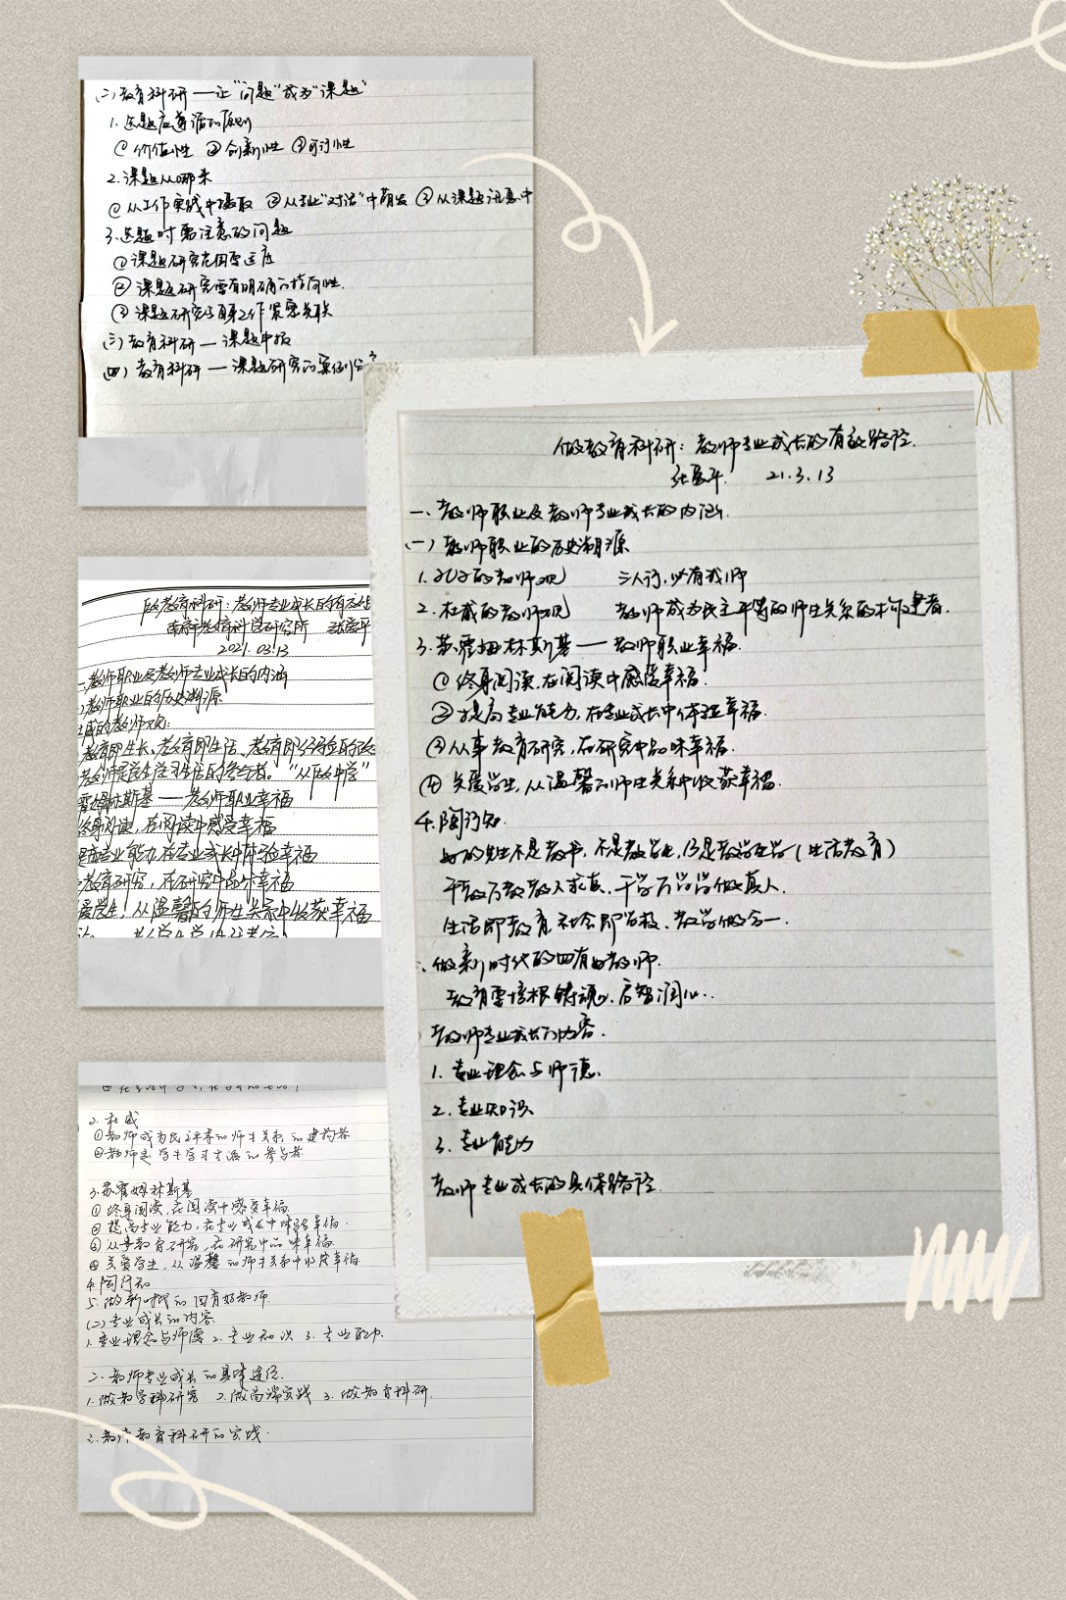 (二)教育科研——让"问题"成为"课题"
1.选题应遵循的原则
①价值性 ②创新性 ③可行性
2.课题从哪来
①从工作实践中撷取 ②从专业"对话"中萌发 ③从课题讯息中
3.选题时需注意的问题
①课题研究范围要适度
②课题研究要有明确的指向性.
③课题研究与自身工作紧密关联
(三)教育科研——课题申报
(四)教育科研——课题研究的案例分
做教育科研:教师专业成长的有效路径.
21.3.13
一、教师职业及教师专业成长的内涵.
(一)教师职业的历史溯源
1.孔子的教师观 三人行,必有我师
2.杜威的教师观 教师成为民主平等的师生关系的构建者.
3.苏霍姆林斯基——教师职业幸福.
①终身阅读,在阅读中感受幸福.
②提高专业能力,在专业成长中体验幸福.
③从事教育研究,在研究中品味幸福.
④关爱学生,从温馨的师生关系中收获幸福.
4.陶行知.
好的先生不是教书,不是教学生,乃是教学生学(生活教育)
千教万教教人求真,千学万学学做真人.
生活即教育,社会即学校,教学做合一.
做新时代的四有好教师.
教育要培根铸魂,启智润心..
教师专业成长的内容.
1.专业理念与师德.
2.专业知识
3.专业能力
教师专业成长的具体路径
做教育科研:教师专业成长的有效路
南京市教育科学研究所
2021.03.13
一、教师职业及教师专业成长的内涵
教师职业的历史溯源
威的教师观:
教育即生长,教育即生活,教育即经验的改
教师是学生学习生活的参与者。"从做中学"
霍姆林斯基——教师职业幸福
终身阅读,在阅读中感受幸福
提高专业能力,在专业成长中体验幸福
教育研究,在研究中品味幸福
爱学生,从温馨的师生关系中收获幸福
2.杜威
①教师成为民主平等的师生关系的建构者
②教师是学生学习生活的参与者
3.苏霍姆林斯基
①终身阅读,在阅读中感受幸福.
②提高专业能力,在专业成长中体验幸福.
③从事教育研究,在研究中品味幸福.
④关爱学生,从温馨的师生关系中收获幸福
4.陶行知
5.做新时代的四有好教师.
(二)专业成长的内容.
1.专业理念与师德 2.专业知识 3.专业能力.
二、教师专业成长的具体途径.
1.做教学科研究 2.做高端实践 3.做教育科研.
三、教师教育科研的实践.